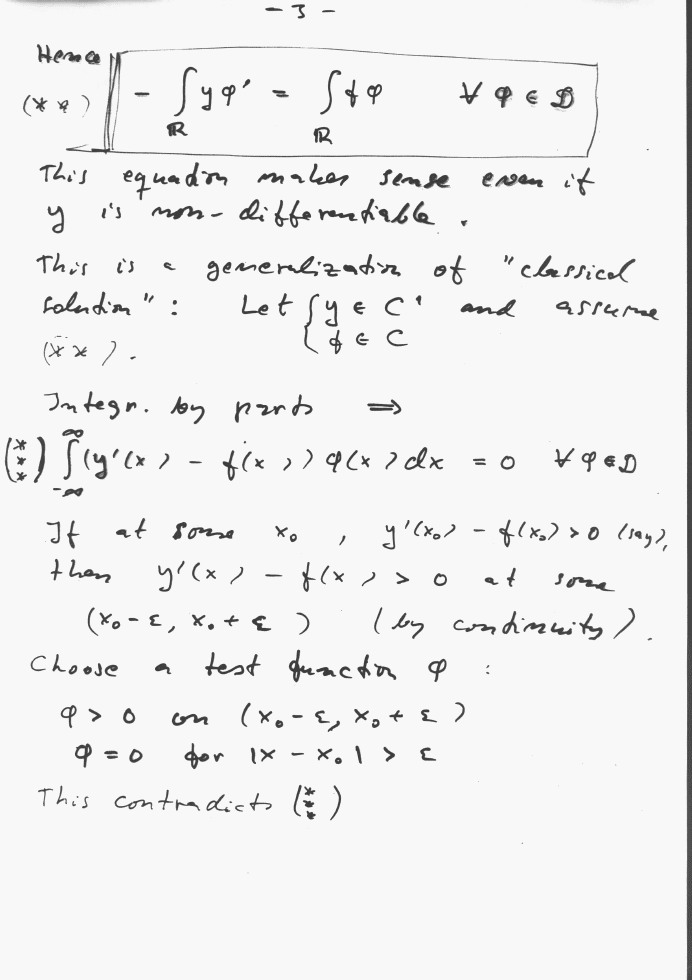 - 3 -
Hence
(**) - ∫_ℝ y φ' = ∫_ℝ f φ ∀ φ ∈ 𝒟
This equation makes sense even if
y is non-differentiable.
This is a generalization of "classical
solution": Let { y ∈ C¹ and assume
f ∈ C
(**).
Integr. by parts ⇒
(***) ∫_{-∞}^{∞} (y'(x) - f(x)) φ(x) dx = 0 ∀ φ ∈ 𝒟
If at some x₀, y'(x₀) - f(x₀) > 0 (say),
then y'(x) - f(x) > 0 at some
(x₀ - ε, x₀ + ε) (by continuity).
Choose a test function φ :
φ > 0 on (x₀ - ε, x₀ + ε)
φ = 0 for |x - x₀| > ε
This contradicts (***)